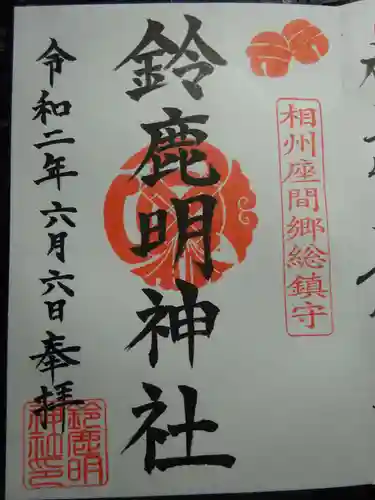 相州座間郷総鎮守
鈴鹿明神社
令和二年六月六日奉拝
鈴鹿明
神社印